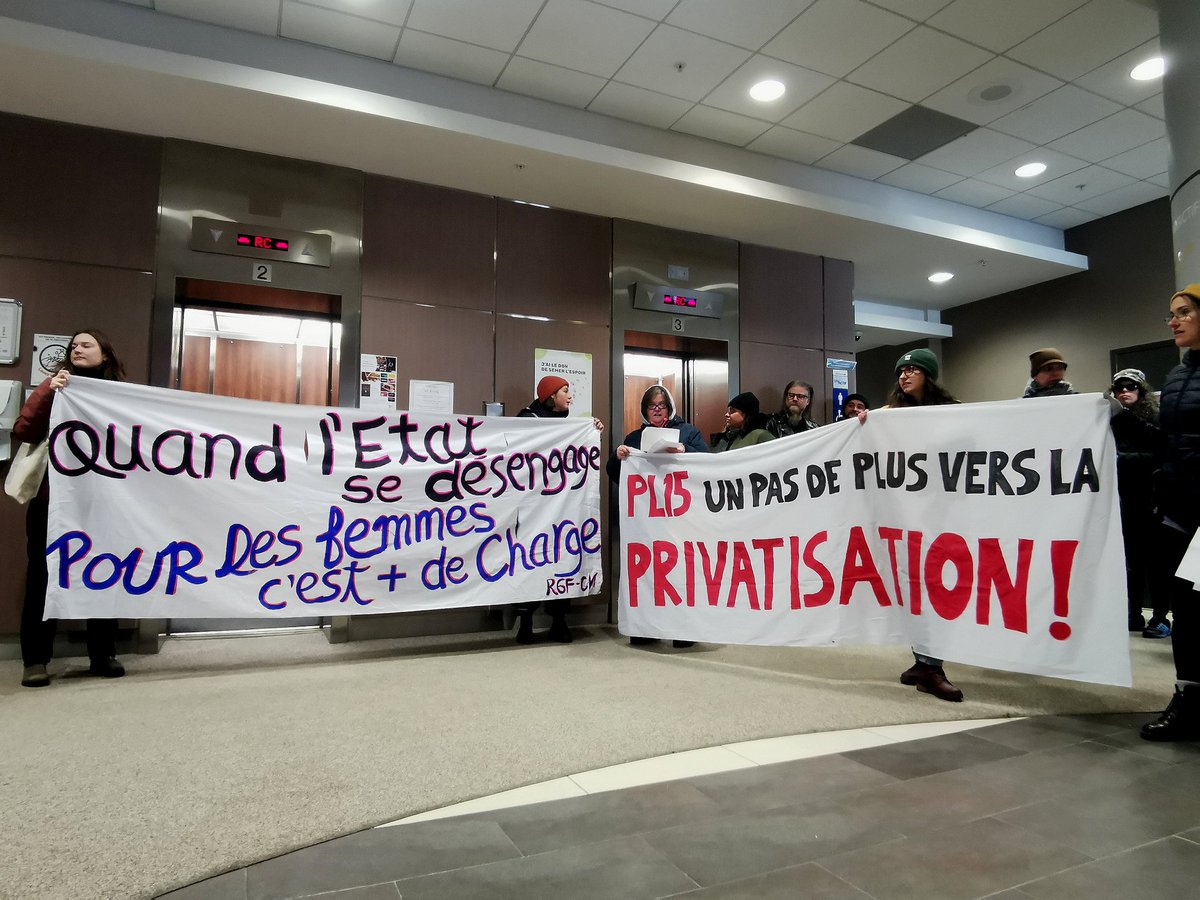 RC
2
RC
3
J'AI LE DON
DE SEMER L'ESPOIR
Quand l'Etat
se désengage
POUR Des femmes
c'est + de Charge
RGF-CN
PL15 UN PAS DE PLUS VERS LA
PRIVATISATION!